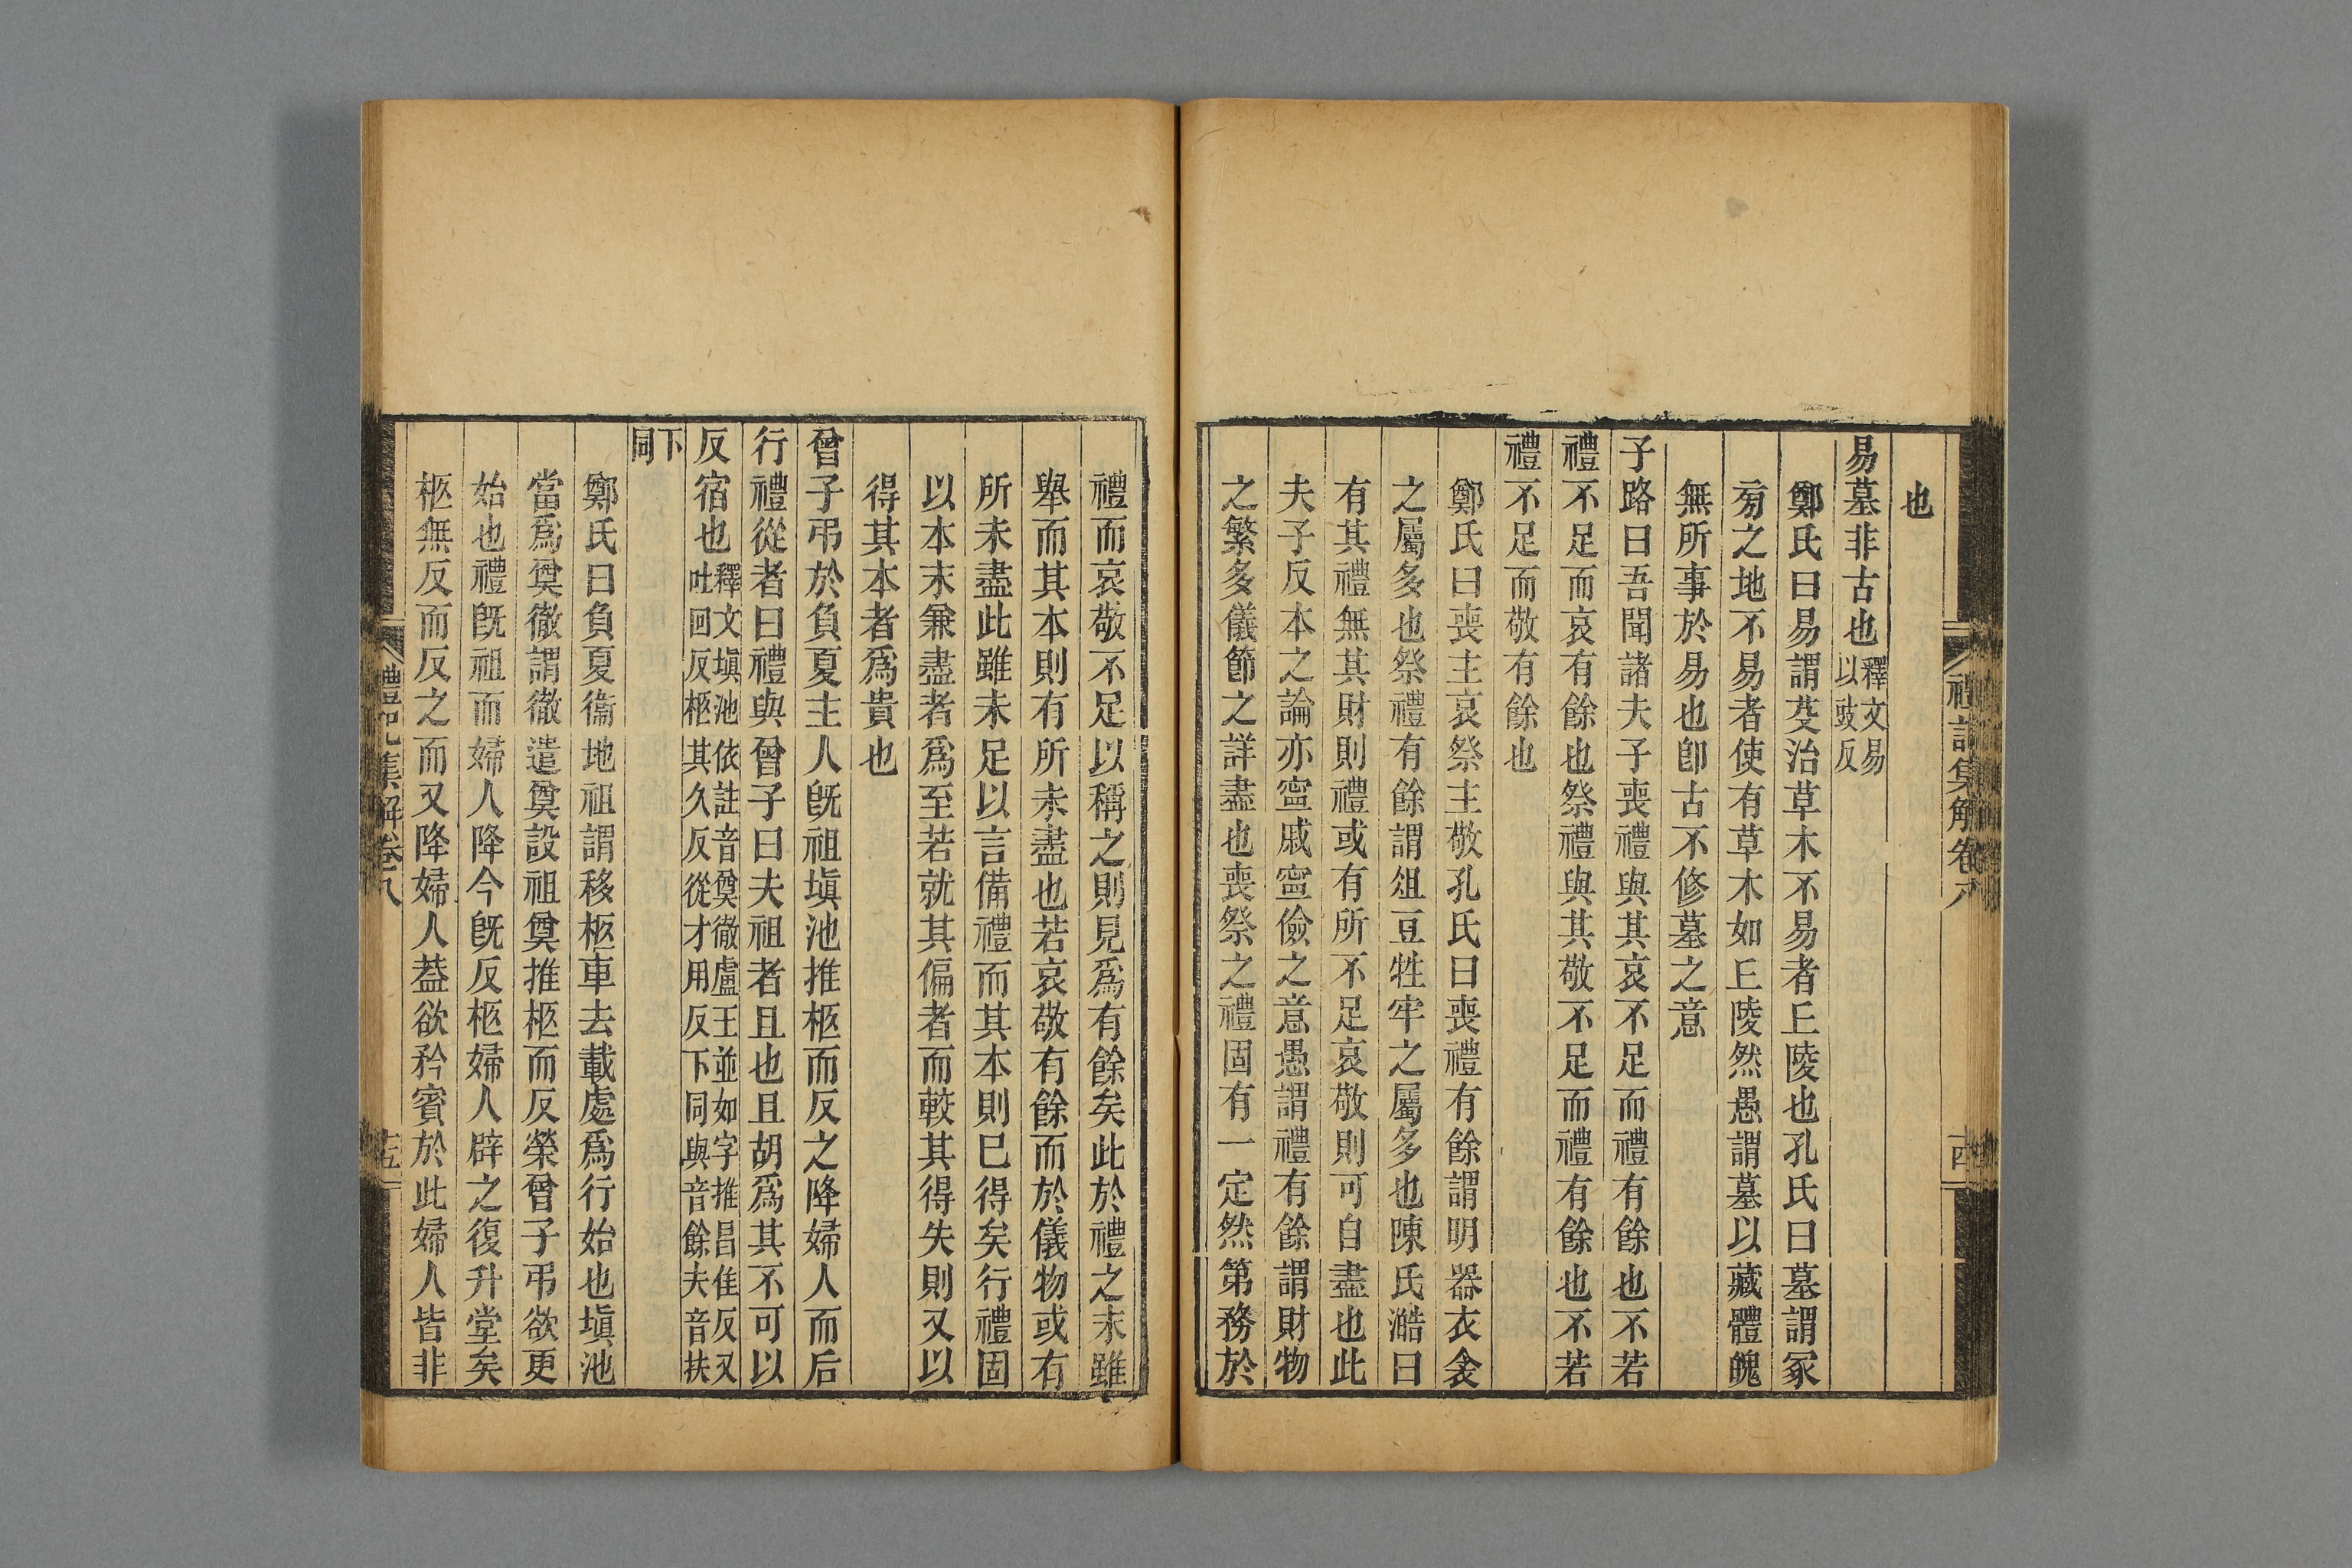 禮記集解卷八
十四
也
易墓非古也釋文易
以豉反
鄭氏曰易謂芟治草木不易者丘陵也孔氏曰墓謂冢
旁之地不易者使有草木如丘陵然愚謂墓以藏體魄
無所事於易也卽古不修墓之意
子路曰吾聞諸夫子喪禮與其哀不足而禮有餘也不若
禮不足而哀有餘也祭禮與其敬不足而禮有餘也不若
禮不足而敬有餘也
鄭氏曰喪主哀祭主敬孔氏曰喪禮有餘謂明器衣衾
之屬多也祭禮有餘謂俎豆牲牢之屬多也陳氏澔曰
有其禮無其財則禮或有所不足哀敬則可自盡也此
夫子反本之論亦寧戚寧儉之意愚謂禮有餘謂財物
之繁多儀節之詳盡也喪祭之禮固有一定然第務於
禮而哀敬不足以稱之則見爲有餘矣此於禮之末雖
舉而其本則有所未盡也若哀敬有餘而於儀物或有
所未盡此雖未足以言備禮而其本則已得矣行禮固
以本末兼盡者爲至若就其偏者而較其得失則又以
得其本者爲貴也
曾子弔於負夏主人旣祖塡池推柩而反之降婦人而后
行禮從者曰禮與曾子曰夫祖者且也且胡爲其不可以
反宿也釋文塡池依註音奠徹盧王並如字推昌隹反又
吐回反柩其久反從才用反下同與音餘夫音扶
下
同
鄭氏曰負夏衞地祖謂移柩車去載處爲行始也塡池
當爲奠徹謂徹遣奠設祖奠推柩而反榮曾子弔欲更
始也禮旣祖而婦人降今旣反柩婦人辟之復升堂矣
柩無反而反之而又降婦人葢欲矜賓於此婦人皆非
禮記集解卷八
十五